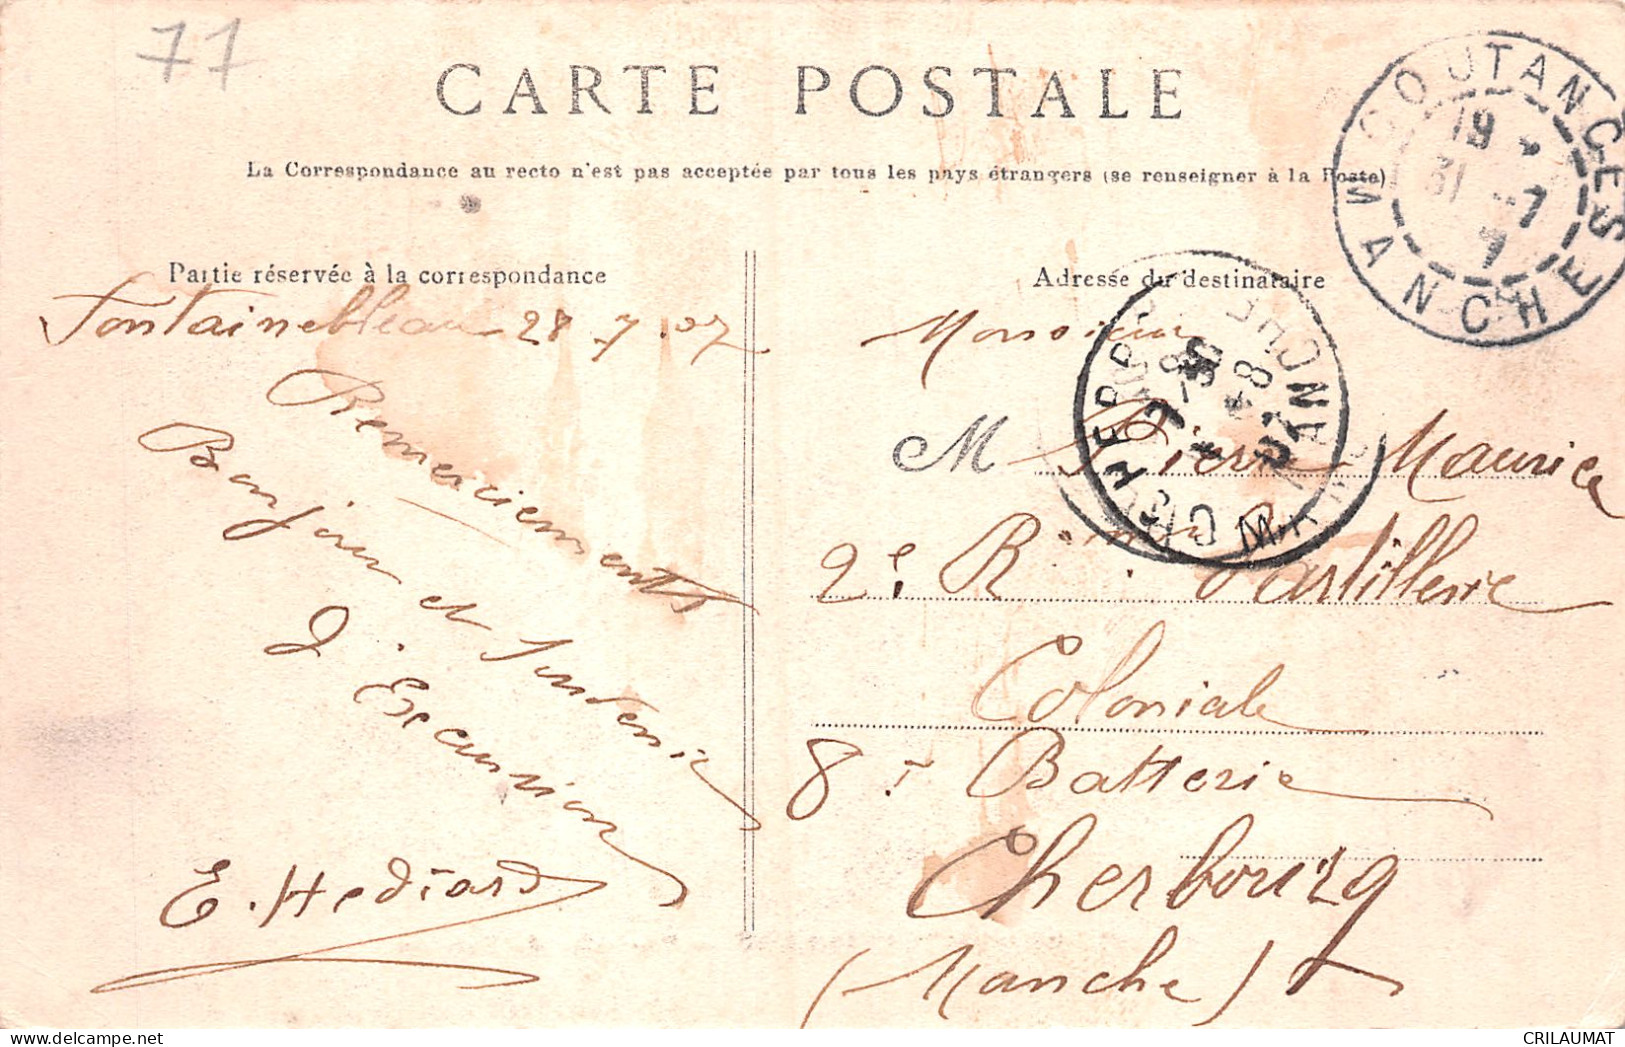 77
CARTE POSTALE
La Correspondance au recto n'est pas acceptée par tous les pays étrangers (se renseigner à la Poste)
COUTANCES
MANCHE
19
31 -7
7
Partie réservée à la correspondance
Fontainebleau 28 7 07
Remerciements
Bonjour et
d'Excursion
E. Hediard
Adresse du destinataire
Monsieur
M Pierre Maurice
2e R d'artillerie
Coloniale
8e Batterie
Cherbourg
(Manche)
CHERBOURG
MANCHE
CRILAUMAT